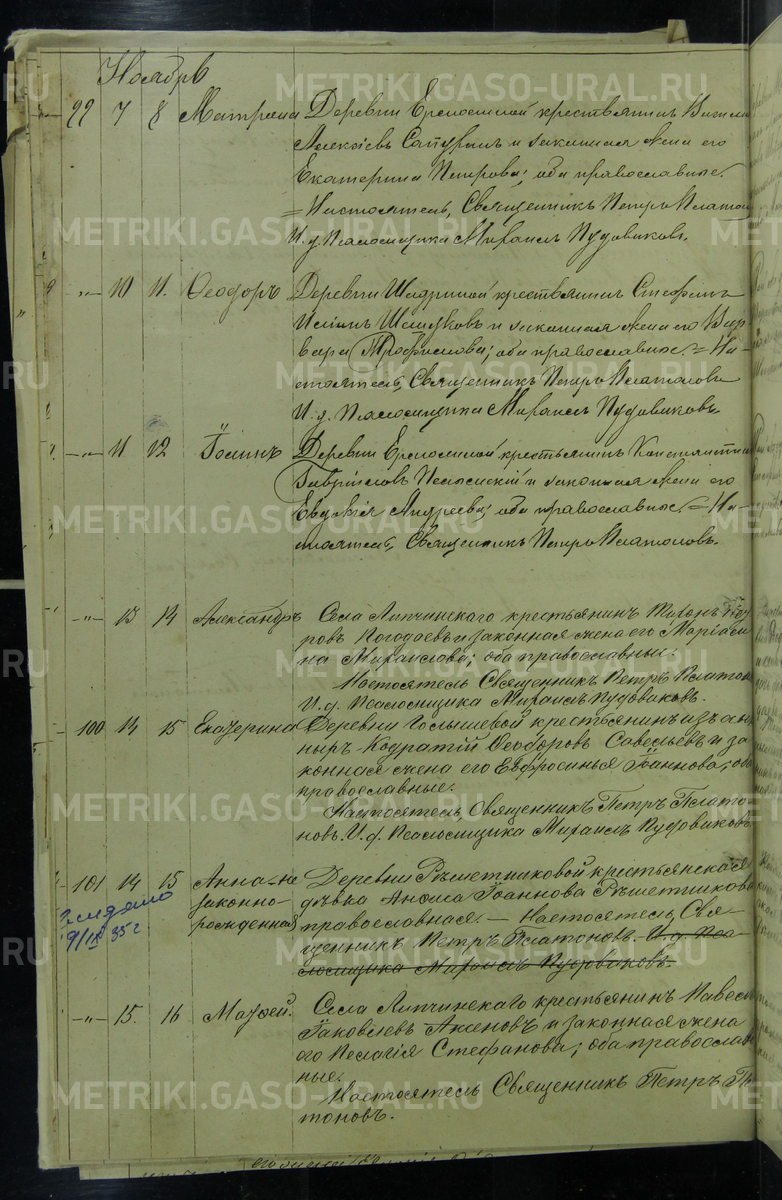 Ноябрь
99 7 8 Матрона Деревни Ерзовской крестьянинъ
Алексѣевъ и законная жена его
Екатерина Петрова; оба православные.
= Настоятель, Священникъ Петръ Платон
И. д. Псаломщика Михаилъ Пудовиковъ.
-"- 10 11. Ѳеодоръ Деревни Шадриной крестьянинъ Стефанъ
и законная жена его Вар
вара Трофимова; оба православные. = На-
стоятель, Священникъ Петръ Платоновъ
И. д. Псаломщика Михаилъ Пудовиковъ.
-"- 11 12 Іоаннъ Деревни крестьянинъ Константинъ
Гавріиловъ и законная жена его
Евдокія Андреева; оба православные. = На-
стоятель, Священникъ Петръ Платоновъ.
-"- 13 14 Александръ Села Липчинскаго крестьянинъ Тихонъ Ѳеду
ровъ Погодаевъ и законная жена его Марі
на Михаилова; оба православныи.
Настоятель Священникъ Петръ Платон
И. д. Псаломщика Михаилъ Пудовиковъ.
100 14 15 Екатерина Деревни Гольшевой крестьянинъ изъ
ныръ Кодратій Ѳеодоровъ Савельевъ и за
конная жена его Евфросинья Іоаннова; оба
православные.
Настоятель, Священникъ Петръ Плато-
новъ. И. д. Псаломщика Михаилъ Пудовиковъ
101 14 15 Анна-не Деревни Рѣшетниковой крестьянская
законно- дѣвка Анѳиса Іоаннова Рѣшетникова
рожденная православная. — Настоятель, Свя-
щенникъ Петръ Платоновъ. И. д. Пса-
ломщика Михаилъ Пудовиковъ.
9/IX 35 г
-"- 15. 16 Матѳей. Села Липчинскаго крестьянинъ Павелъ
Іаковлевъ Аксеновъ и законная жена
его Пелагія Стефанова; оба православ
ные.
Настоятель Священникъ Петръ Пла
тоновъ.
METRIKI.GASO-URAL.RU